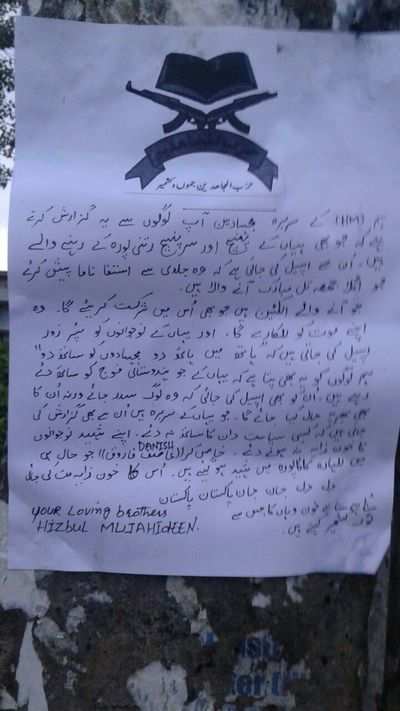 حزب المجاھدین جموں و کشمیر
ہم (HM) کے سربراہ مجاہدین آپ لوگوں سے یہ گزارش کرتے
ہے کہ جو بھی یہاں کے پنچ اور سرپنچ رتنی پورہ کے رہنے والے
ہیں۔ اُن سے اپیل کی جاتی ہے کہ وہ جلدی سے استفا ناما پیش کرے
آنے والا ہیں۔
جو آنے والے الکشن ہیں جو بھی اُس میں شرکت کریئے گا۔ وہ
اپنے موت کو للکارے گا۔ اور یہاں کے نوجوانوں کو پر زور
اپیل کی جاتی ہیں کہ " ہاتھ میں ہاتھ دو مجاہدوں کو ساتھ دو"
ہم لوگوں کو یہ بھی پتا ہے کہ یہاں کے جو ہندوستانی فوج کو ساتھ دے
رہے ہیں۔ اُن کو بھی اپیل کی جاتی کہ وہ لوگ سدر جائے ورنہ اُن کا
بھی کیا جائے گا۔ جو یہاں کے سربراہ ہیں اُن سے بھی گزارش کی
جاتی ہیں کہ کسی سیاست دان کا ساتھ نہ دے۔ اپنے شہید نوجوانوں
کا خون نہ دے۔ خاص کر DANISH فاروق!! جو حال ہی
میں شہید ہو گئے ہیں۔ اُس کا خون مت کی
دل دل جان جان پاکستان پاکستان
YOUR Loving brothers
HIZBUL MUJAHIDEEN.
خون کا جس سے
ہیں۔